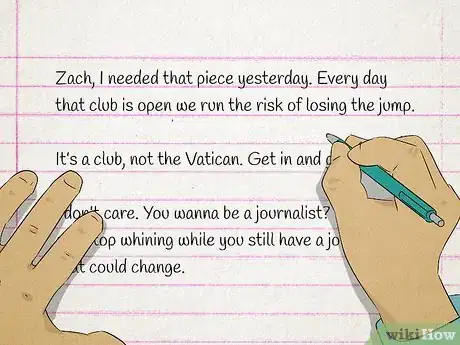 Zach, I needed that piece yesterday. Every day
that club is open we run the risk of losing the jump.
It's a club, not the Vatican. Get in and
don't care. You wanna be a journalist?
top whining while you still have a jo
t could change.
wikiHow